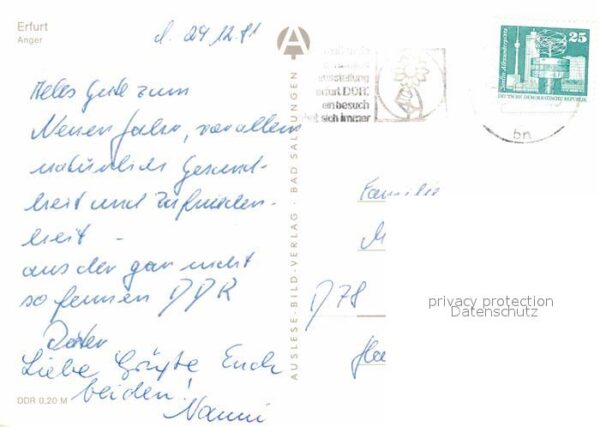 Erfurt
Anger
d. 29.12.81
Alles Gute zum
Neuen Jahr, vor allem
natürlich Gesund-
heit und Zufrieden-
heit -
aus der gar nicht
so fernen DDR
Liebe Grüße Euch
beiden!
Nanni
DDR 0,20 M
AUSLESE-BILD-VERLAG · BAD SALZUNGEN
ausstellung
erfurt DDR
ein besuch
sich immer
25
Berlin, Alexanderplatz
DEUTSCHE DEMOKRATISCHE REPUBLIK
bn
Familie
M
D 78
privacy protection
Datenschutz